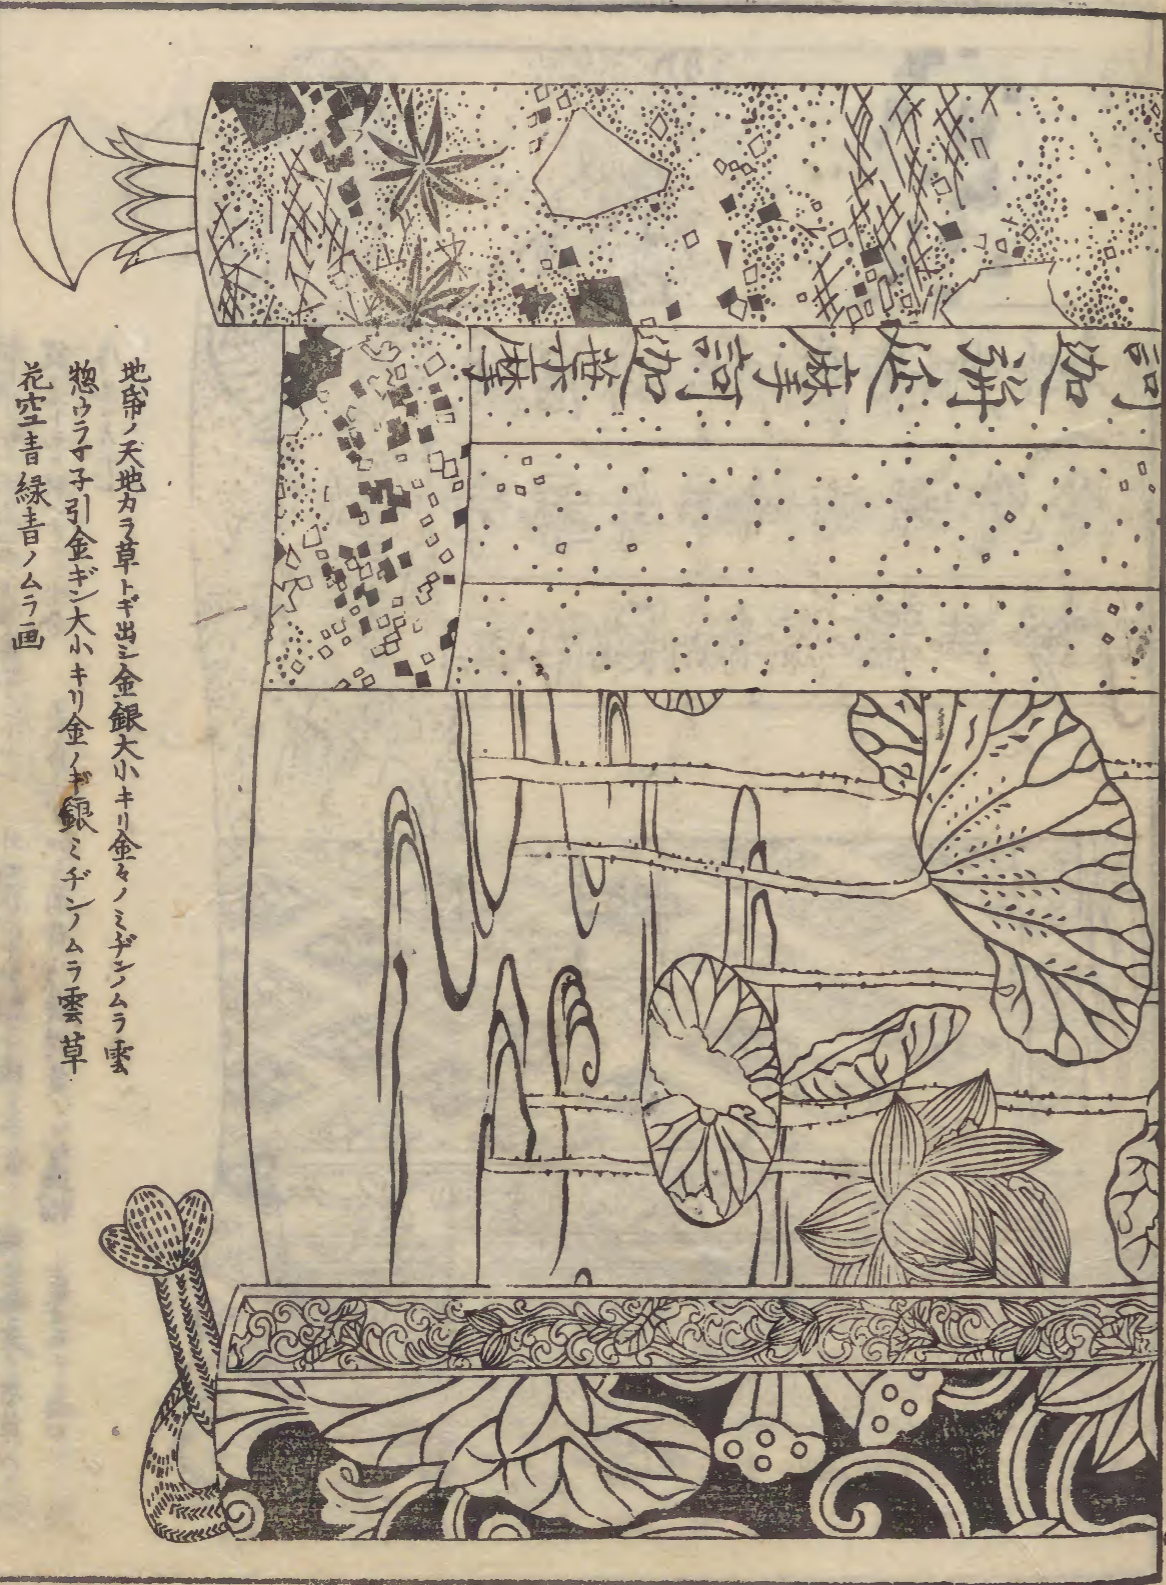 訶迦旃延摩訶迦葉摩
地帋ノ天地カラ草トギ出シ金銀大小キリ金々ノミヂンノムラ雲
惣ウラオ子引金ギン大小キリ金ノギ銀ミヂンノムラ雲草
花空青緑青ノムラ画